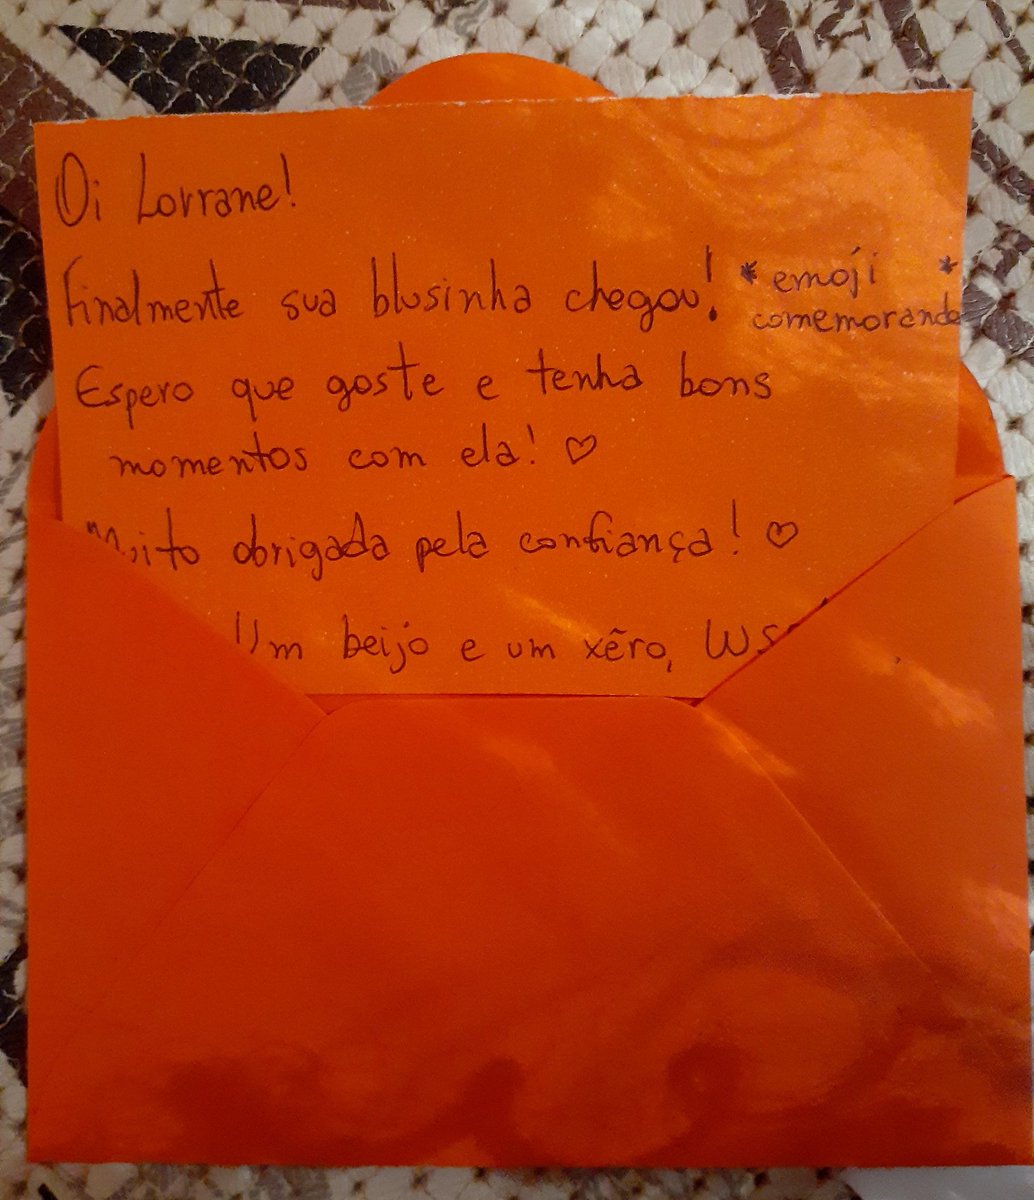 Oi Lorrane!
Finalmente sua blusinha chegou! *emoji *
comemorando
Espero que goste e tenha bons
momentos com ela! ♡
Muito obrigada pela confiança! ♡
Um beijo e um xêro,